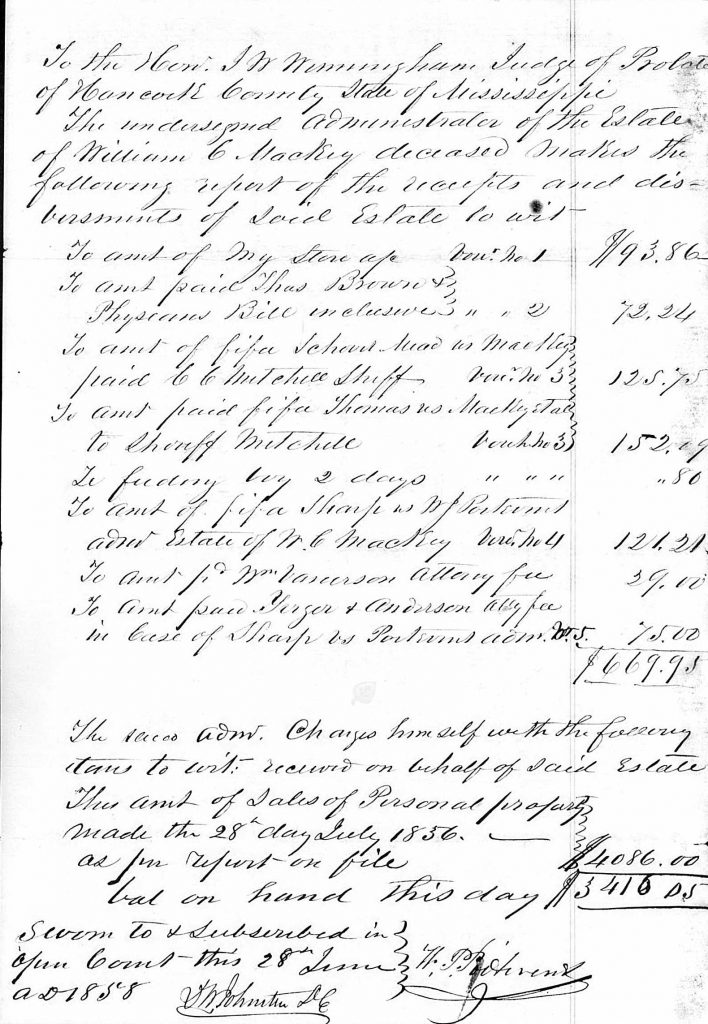 To the Hon. J W Winningham Judge of Probate
of Hancock County State of Mississippi
The undersigned Administrator of the Estate
of William C Mackey deceased makes the
following report of the receipts and dis-
bersments of said Estate to wit
To amt of My Store a/c Vour. No 1 $93.86
To amt paid Thos Brown &
Physcans Bill inclusive " " 2 72.24
To amt of fifa vs Mackey
paid C C Mitchell Shff Vour. No 3 125.75
To amt paid fifa Thomas vs Mackey Est
to Sheriff Mitchell Vouch. No 3 152.09
To feeding boy 2 days " " " " 80
To amt of fifa Sharp vs
admr Estate of W. C Mackey Vour. No 4 121.21
To amt pd Wm Attorny fee 29.00
To Amt paid Yerger & Anderson Atty fee
in Case of Sharp vs adm. No 5. 75.00
$669.95
The said adm. Charges himself with the following
items to wit: received on behalf of said Estate
This amt of Sales of Personal property
made the 28th day July 1856.
as per report on file $4086.00
bal on hand this day $3416 05
Sworn to & Subscribed in
open Court this 28th June
AD 1858
Johnston DC